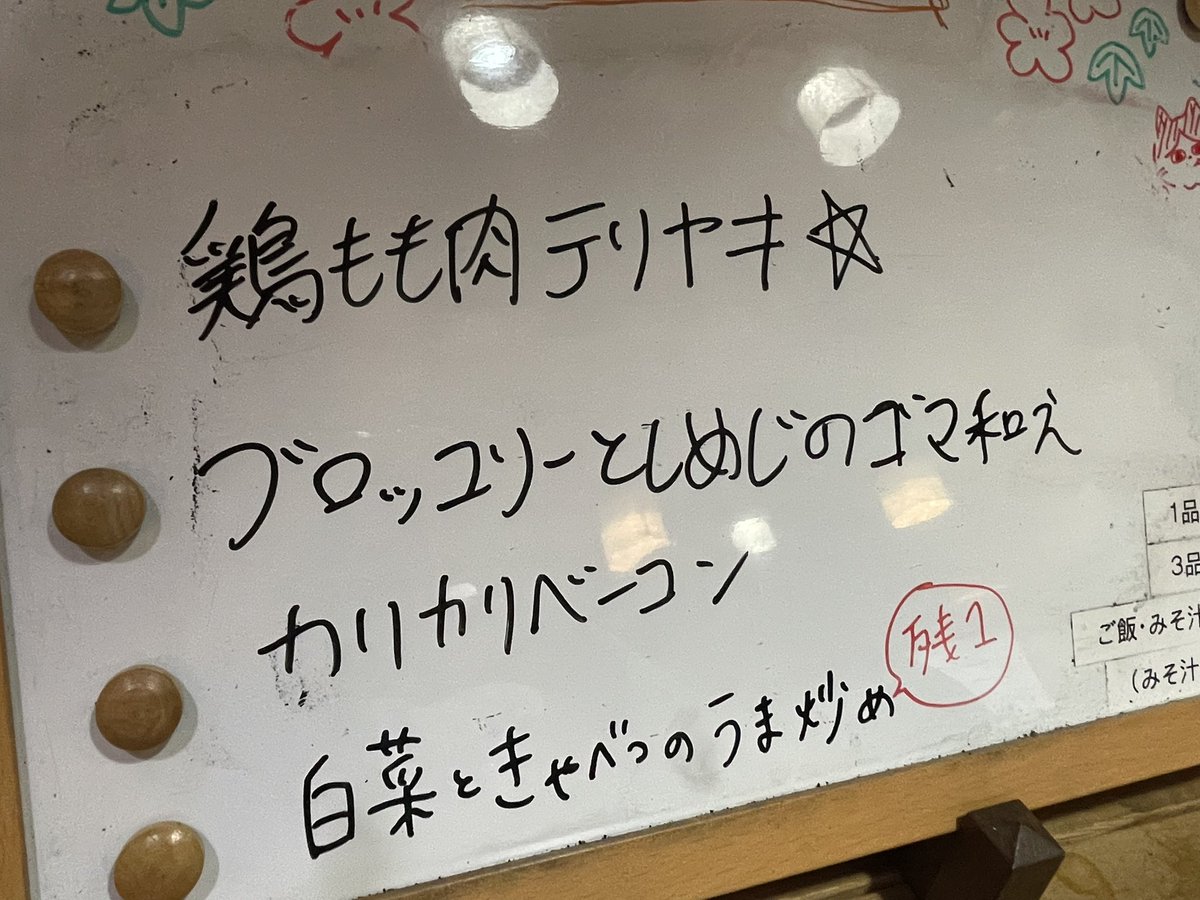 鶏もも肉テリヤキ☆
ブロッコリーとしめじのゴマ和え
カリカリベーコン
白菜ときゃべつのうま炒め
残1
1品
3品
ご飯・みそ汁
(みそ汁